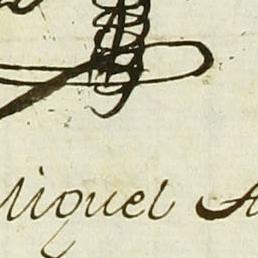 Miguel A